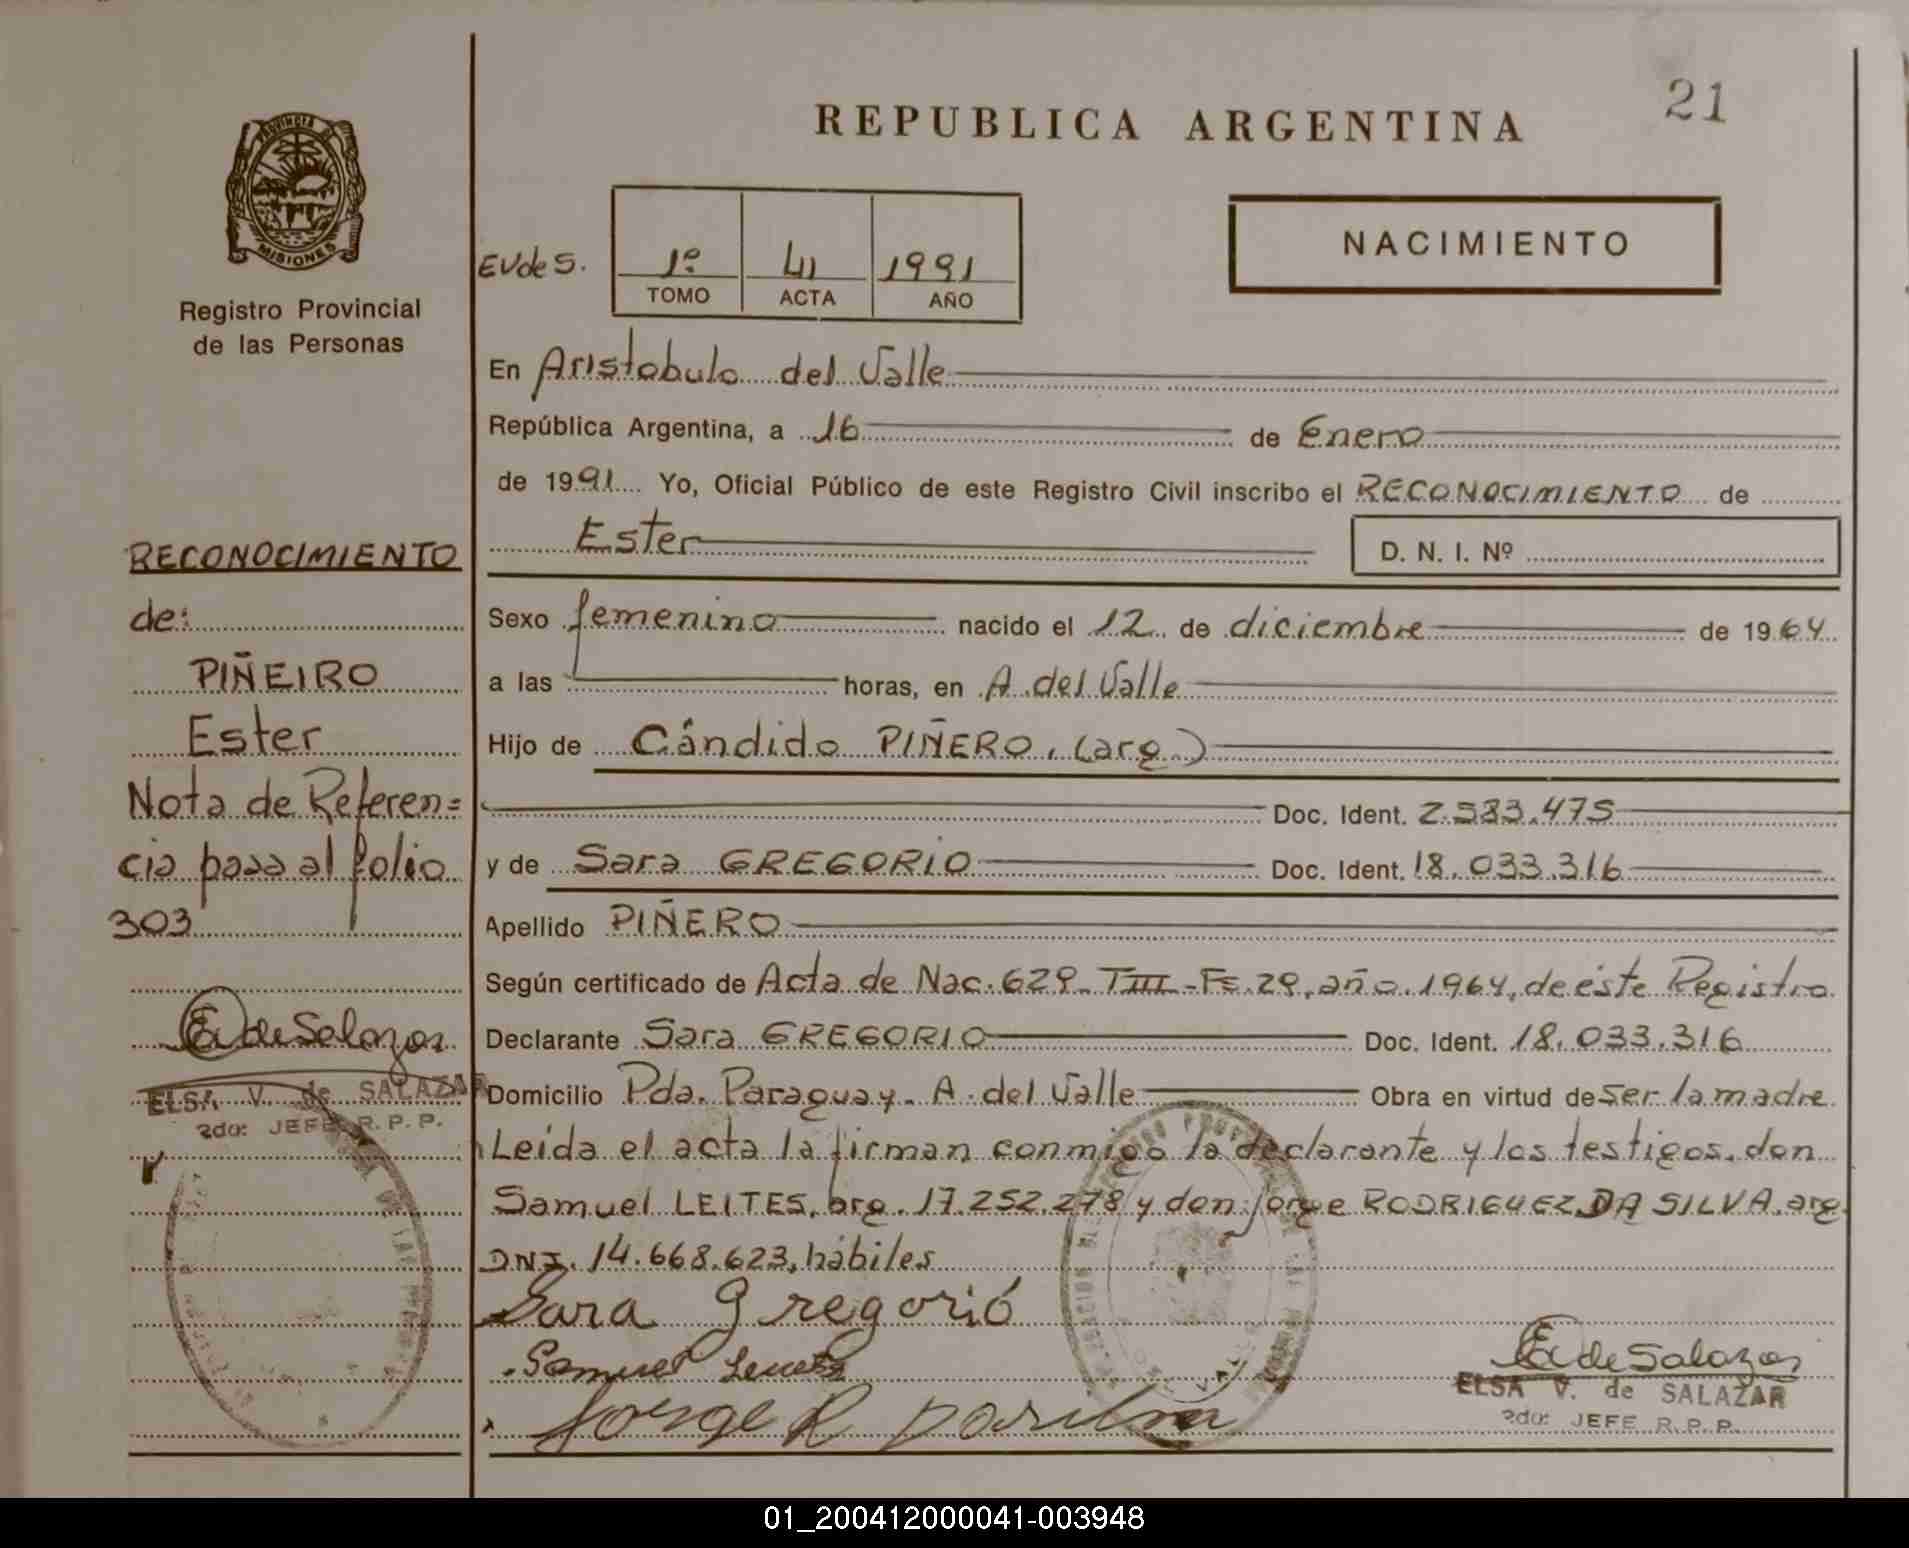 21
REPUBLICA ARGENTINA
PROVINCIA DE
MISIONES
Registro Provincial
de las Personas
EVdeS.
1º 41 1991
TOMO ACTA AÑO
NACIMIENTO
En Aristobulo del Valle
República Argentina, a 16 de Enero
de 1991 Yo, Oficial Público de este Registro Civil inscribo el RECONOCIMIENTO de
Ester D. N. I. Nº
Sexo femenino nacido el 12 de diciembre de 1964
a las horas, en A. del Valle
Hijo de Cándido PIÑERO, (arg.)
Doc. Ident. 2.583.475
y de Sara GREGORIO Doc. Ident. 18.033.316
Apellido PIÑERO
Según certificado de Acta de Nac. 629. TIII-Fº 29, año 1964, de éste Registro
Declarante Sara GREGORIO Doc. Ident. 18.033.316
Domicilio Pda. Paraguay. A. del Valle Obra en virtud de ser la madre
Leída el acta la firman conmigo la declarante y los testigos, don
Samuel LEITES, arg. 17.252.278 y don Jorge RODRIGUEZ DA SILVA, arg.
DNI. 14.668.623, hábiles
Sara Gregorió
Samuel
Jorge R Dasilva
EVdeSalazar
ELSA V. de SALAZAR
2do: JEFE R.P.P.
RECONOCIMIENTO
de:
PIÑEIRO
Ester
Nota de Referen=
cia pasa al folio
303
EVdeSalazar
ELSA V. de SALAZAR
2do: JEFE R.P.P.
01_200412000041-003948